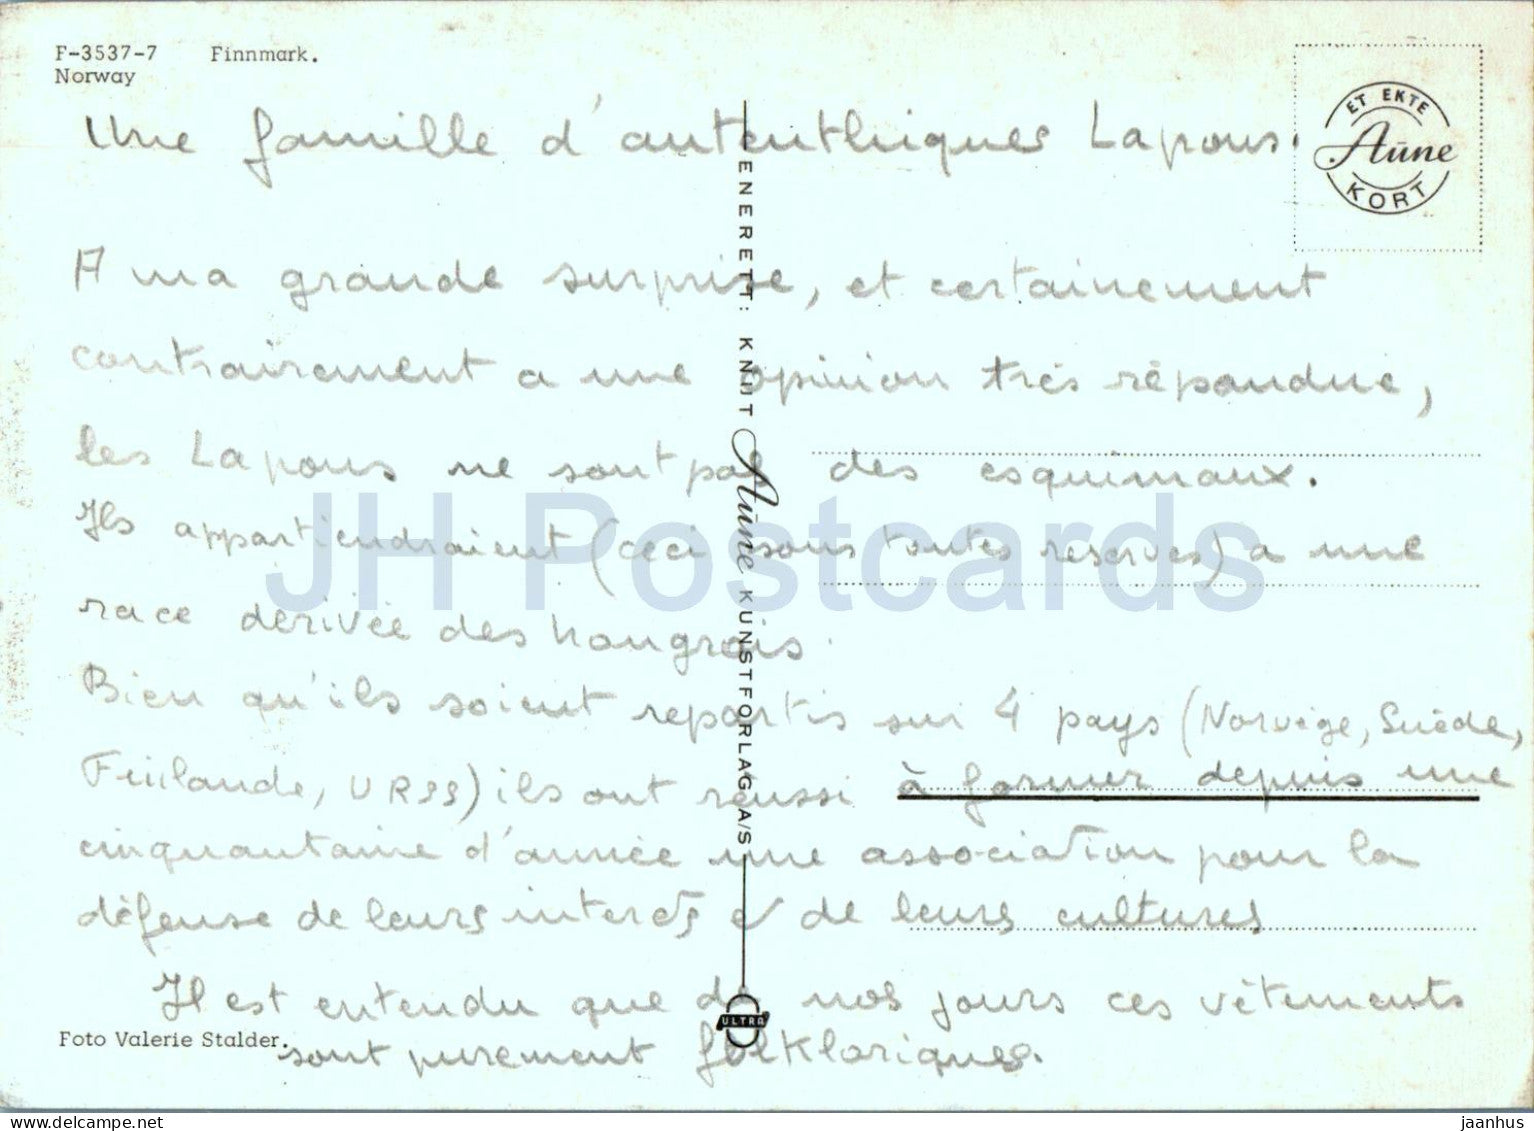 F-3537-7 Finnmark.
Norway
ET EKTE
Aune
KORT
Une famille d'autenthiques Lapons.
A ma grande surprise, et certainement
contrairement a une opinion très répandue,
les Lapons ne sont pas des esquimaux.
Ils appartiendraient (ceci sous toutes reserves) a une
race dérivée des hongrois.
Bien qu'ils soient repartis sur 4 pays (Norvège, Suède,
Finlande, URSS) ils ont réussi à former depuis une
cinquantaine d'année une association pour la
défense de leurs interêts & de leurs cultures
Il est entendu que de nos jours ces vêtements
sont purement folkloriques.
ENERETT: KNUT Aune KUNSTFORLAG A/S
ULTRA
Foto Valerie Stalder.
JH Postcards
www.delcampe.net
jaanhus